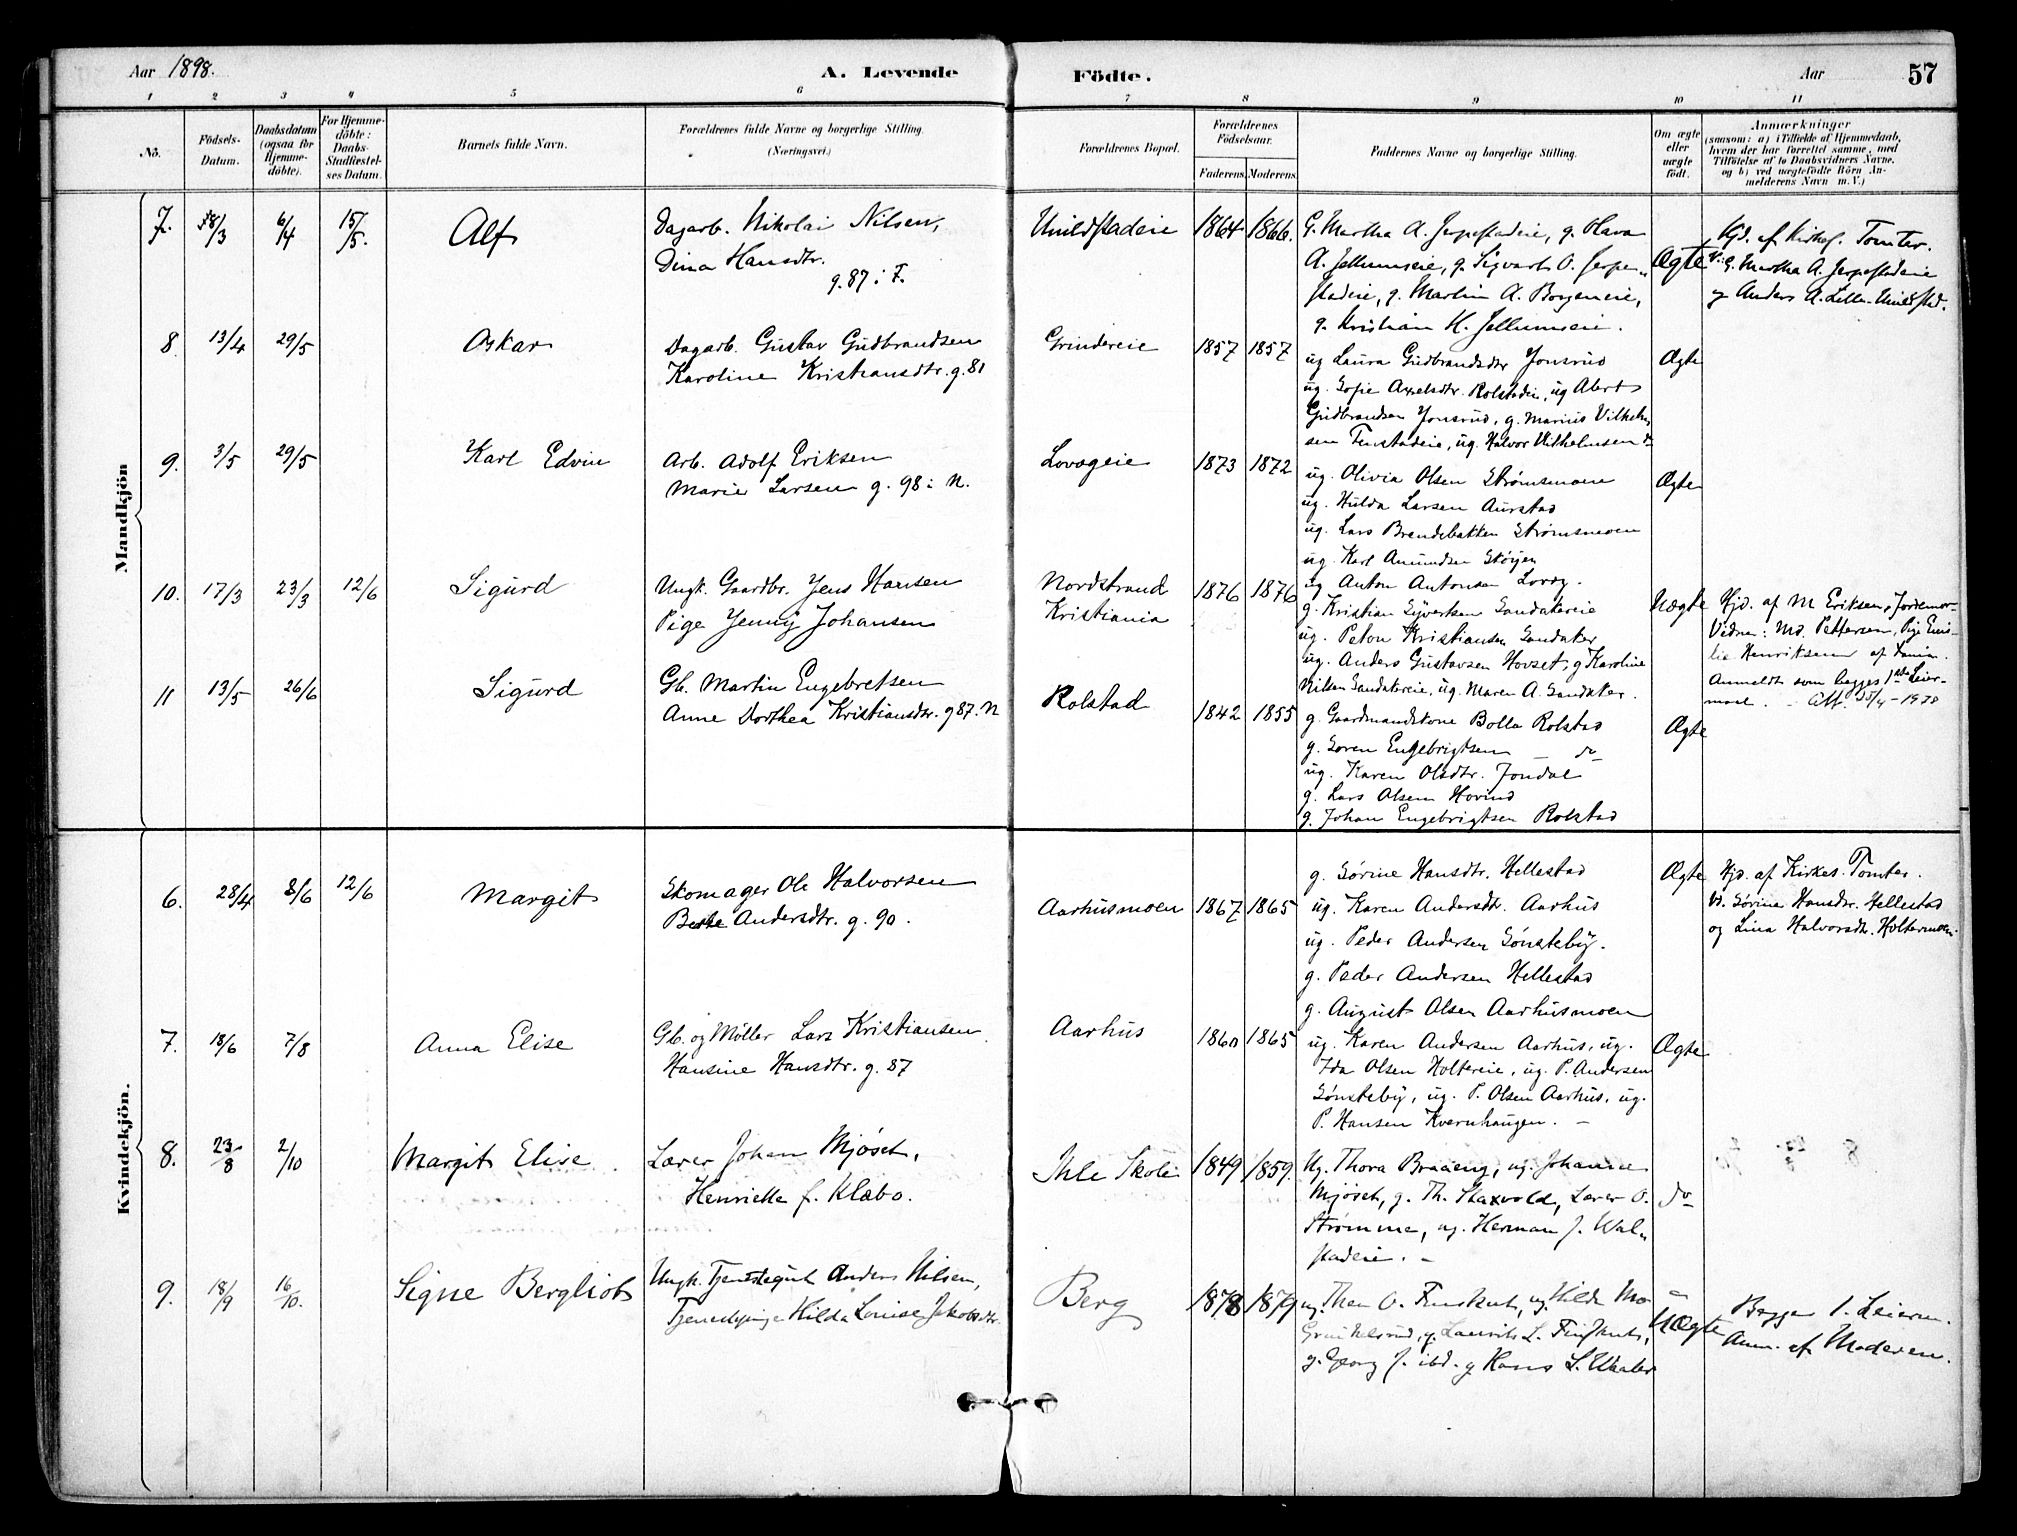 Aar 1898.
A. Levende Födte.
Aar
57
1 2 3 4 5 6 7 8 9 10 11
No.
Födsels-Datum.
Daabsdatum (ogsaa for Hjemme-döbte).
For Hjemme-döbte: Daabs-Stadfæstel-ses Datum.
Barnets fulde Navn.
Forældrenes fulde Navne og borgerlige Stilling.
(Næringsvei.)
Forældrenes Bopæl.
Forældrenes Födselsaar.
Faderens. Moderens.
Faddernes Navne og borgerlige Stilling.
Om ægte eller uægte födt.
Anmærkninger
(saasom: a) i Tilfælde af Hjemmedaab,
hvem der har forrettet samme, med
Tilföielse af to Daabsvidners Navne,
og b) ved uægtefödte Börn An-
melderens Navn m. V.)
Mandkjön
7. 6/4 15/5. Alf
Dagarb. Nikolai Nilsen,
Dina Hansdtr.
g. 87 i F.
1864 1866.
G. Martha A. Jerpestadeie, g. Olava
A. Jellumseie, g. Sigvart O. Jerpe-
stadeie, g. Martin A. Borgeneie,
g. Kristian H. Jellumseie.
Ægte
Hjd. af Tomter.
V: G. Martha A. Jerpestadeie
og Anders A. Lille-
8 13/4 29/5 Oskar
Dagarb. Gustav Gudbrandsen
Karoline Kristiansdtr. g. 81
Grindereie 1857 1857
ug Laura Gudbrandsdtr Jonsrud
ug. Sofie Axelsdtr. Rolstadeie, ug Albert
Gudbrandsen Jonsrud, g. Marius Vilhelm-
sen Finstadeie, ug. Halvor Vilhelmsen do
Ægte
9. 3/5 29/5 Karl Edvin
Arb. Adolf Eriksen
Marie Larsen g. 98 i N.
Lovogeie 1873 1872
ug. Olivia Olsen Strømsmoen
ug. Hulda Larsen Aurstad
ug. Lars Brendebakken Strømsmoen
ug. Karl Amundsen Skøyen
ug Anton Antonsen Lovog.
Ægte
10. 17/3 23/3 12/6 Sigurd
Ungk. Gaardbr. Jens Hansen
Pige Jenny Johansen
Nordstrand
Kristiania
1876 1876
g. Kristian Syvertsen Sandakereie
ug. Peton Kristiansen Sandaker
ug. Anders Gustavsen Hovset, g Karoline
Nilsen Sandakereie, ug. Maren A. Sandaker.
Uægte
Hjd. af M Eriksen, Jordemor
Vidner: Md. Pettersen, Pige Emi-
lie Henriksen
Anmeldt som begges 1ste Leier-
maal. Att. 25/4-1938
11 13/5 26/6 Sigurd
Gb. Martin Engebretsen
Anne Dorthea Kristiansdtr. g 87. N
Rolstad 1842 1855
g. Gaardmandskone Bolla Rolstad
g. Soren Engebrigtsen — do
ug. Karen Olsdtr. Jondal
g. Lars Olsen Hovind
g. Johan Engebrigtsen Rolstad
Ægte
Kvindekjön.
6. 28/4 8/6 12/6 Margit
Skomager Ole Halvorsen
Andersdtr. g. 90.
Aarhusmoen 1867 1865
g. Sørine Hansdtr. Hellestad
ug. Karen Andersdtr. Aarhus
ug. Peder Andersen Sønsteby.
g. Peder Andersen Hellestad
g. August Olsen Aarhusmoen
Ægte
Hjd. af Kirkes. Tomter.
Vd. Sørine Hansdtr. Hellestad
og Lina Halvorsdtr. Holtermoen.
7. 18/6 7/8 Anna Elise
Gb. og Møller Lars Kristiansen
Hansine Hansdtr. g. 87
Aarhus 1860 1865
ug. Karen Andersen Aarhus, ug.
Ida Olsen Holtereie, ug. P. Andersen
Sønsteby, ug. P. Olsen Aarhus, ug.
P. Hansen Kvernhaugen. –
Ægte
8. 23/8 2/10 Margit Elise
Lærer Johan Mjøset,
Henriette f. Klæbo.
Ihle Skole 1849 1859.
Ug. Thora Braaeng, ug. Johanne
Mjøset, g. Th. Skaxvold, Lærer O.
Strømme, ug. Herman J. Wal-
stadeie. –
do
9. 18/9 16/10. Signe Bergliot
Ungk. Tjenestegut Anders Nilsen,
Tjenestepige Hilda Louise Jakobsdtr.
Berg 1878 1879
ug. Thea O. ug. Hilda Mo
g. Laurits L.
g. Georg J. ibd. g Hans L.
Uægte
Begges 1. Leierm.
Anm. af Moderen.